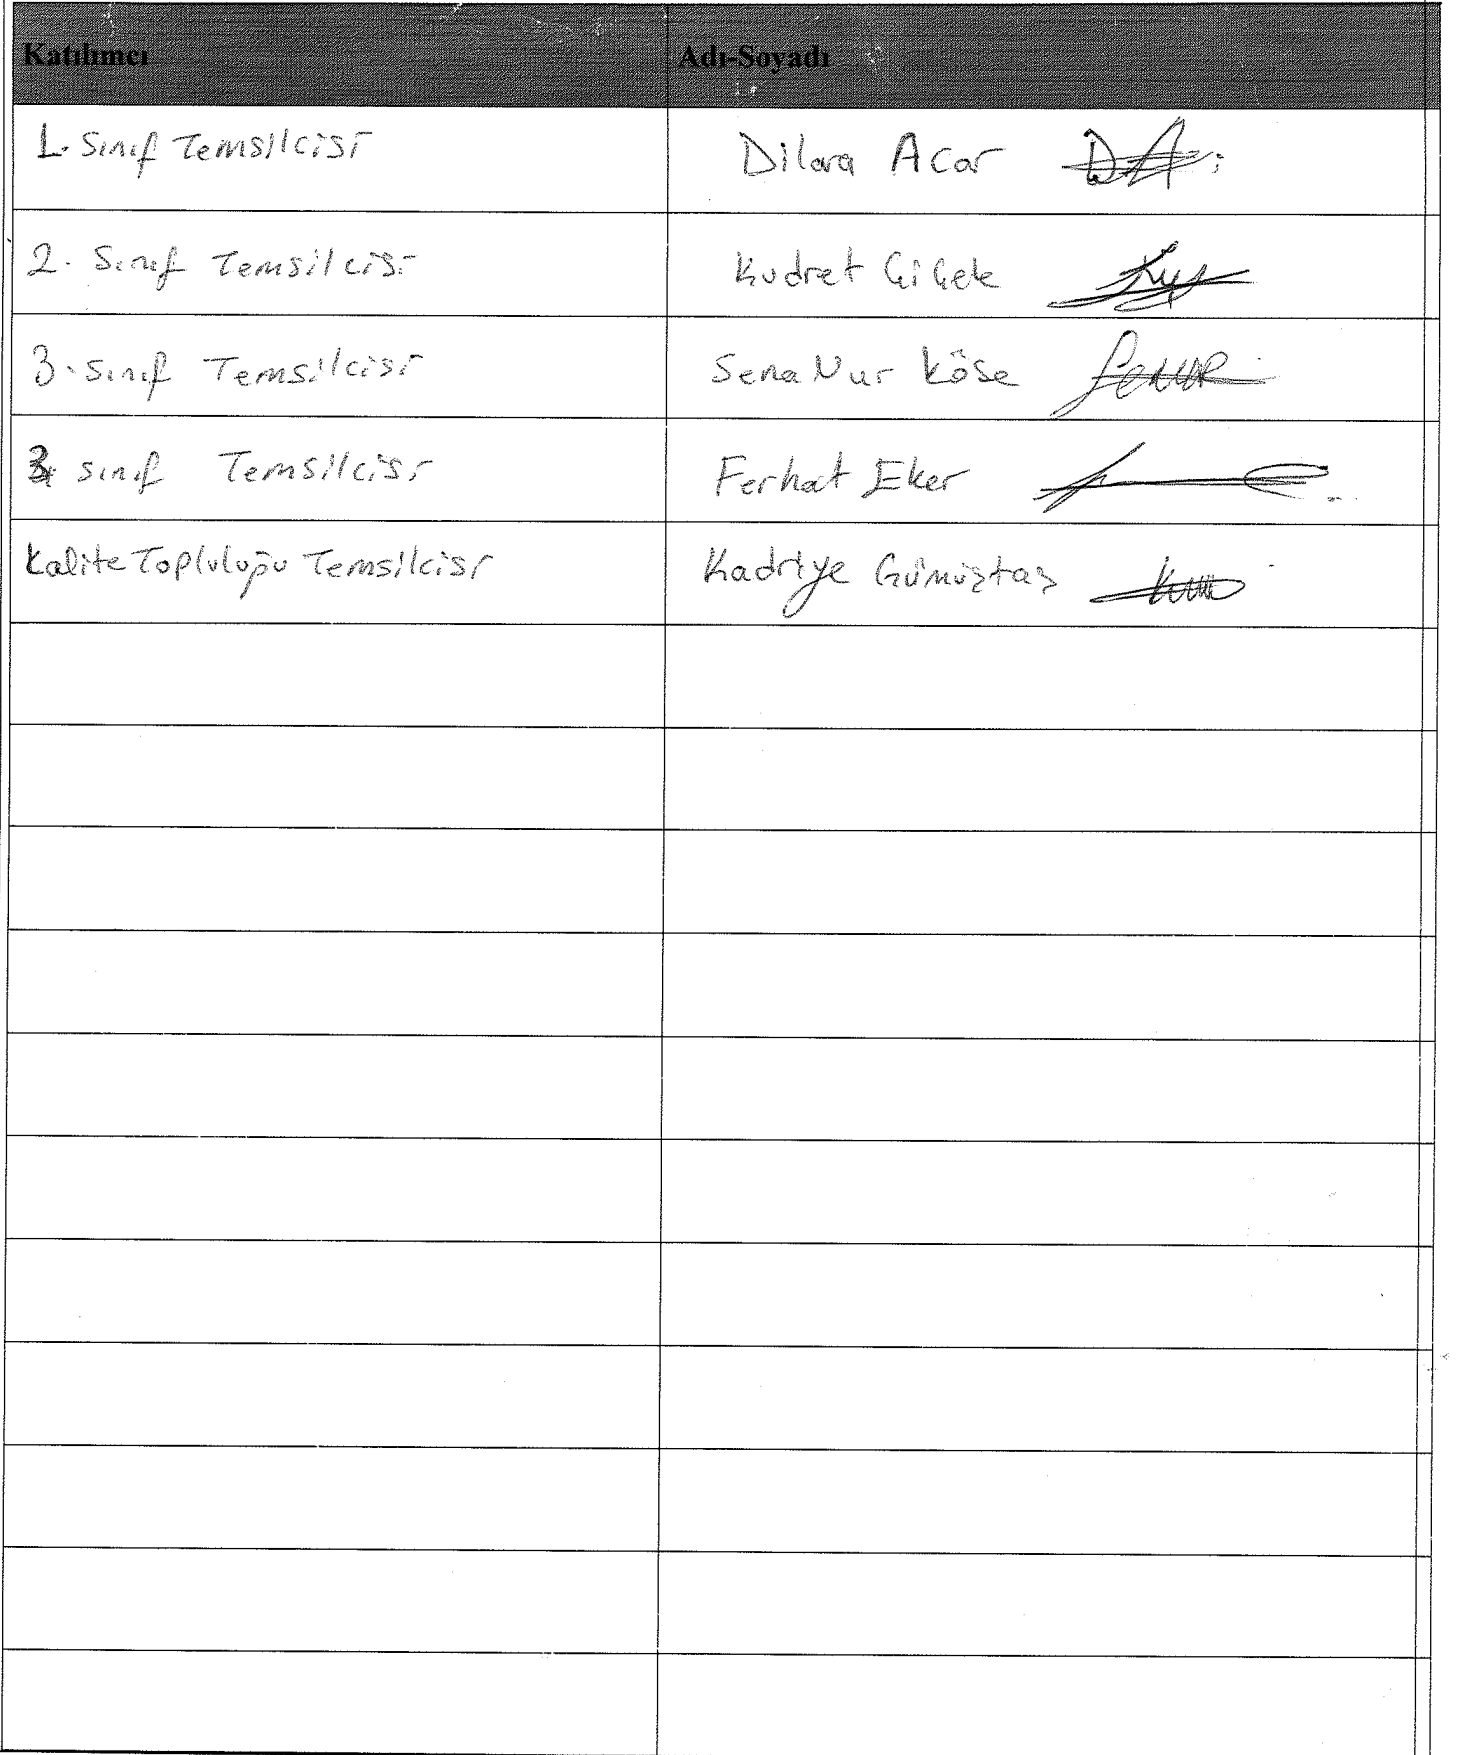 Katılımcı Adı-Soyadı
1. Sınıf Temsilcisi Dilara Acar DA
2. Sınıf Temsilcisi Kudret Çiçek
3. Sınıf Temsilcisi Sena Nur Köse
sınıf Temsilcisi Ferhat Eker
Kalite Topluluğu Temsilcisi Kadriye Gümüştaş